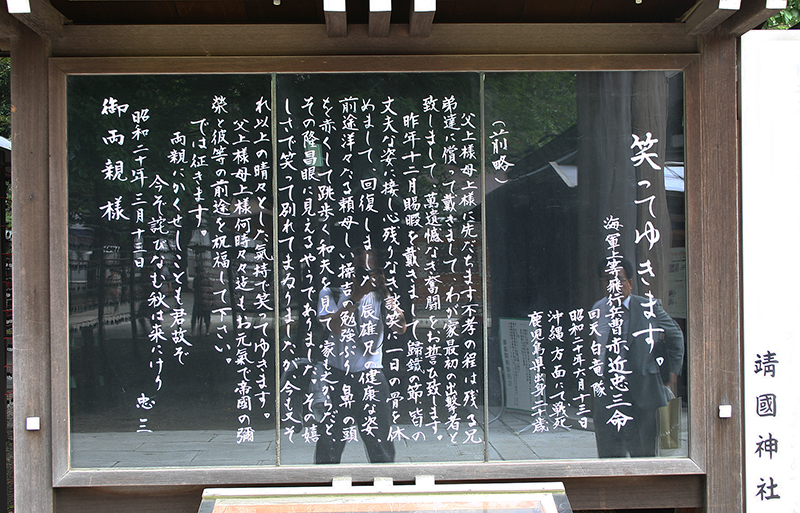 笑ってゆきます。
海軍上等飛行兵曹 赤近忠三命
回天白竜隊
昭和二十年六月十三日
沖縄方面にて戦死
鹿児島県出身二十歳
(前略)
父上様母上様に先だちます不孝の程は残る兄
弟達に償って戴きまして、わが家最初の出撃者と
致しまして、萬遺憾なき奮闘をお誓ひ致します。
昨年十二月賜暇を戴きまして歸鄕の節、皆の
丈夫な姿に接し心残りなき談笑に一日の骨を休
めまして、回復しました。辰雄兄の健康な姿、
前途洋々たる頼母しい操吉の勉強ぶり、鼻の頭
を赤くして跳歩く和夫を見て、家も之からだぞ、
その隆昌眼に見えるやうでありました。その嬉
しさで笑って別れてまゐりましたが、今も又そ
れ以上の晴々とした気持で笑ってゆきます。
父上様母上様何時々々迄もお元氣で帝國の彌
榮と彼等の前途を祝福して下さい。
では征きます。
両親にかくせしことも君故ぞ
今ぞ詫びなむ秋は来にけり
忠三
昭和二十年三月十三日
御両親様
靖國神社